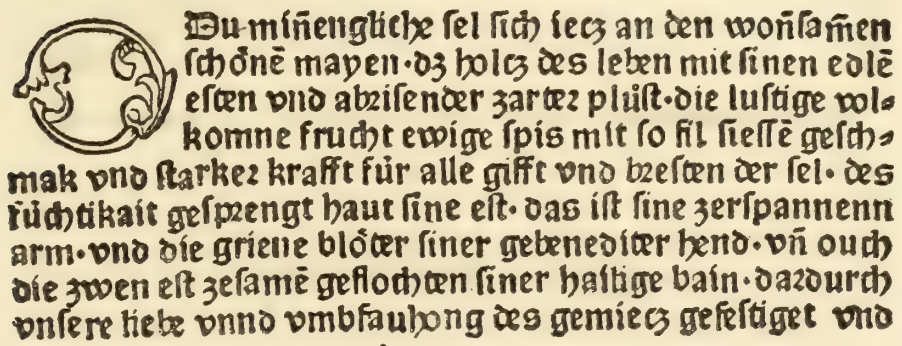 O Du miñengliche sel sich iecz an den woñsam̃en
schönē mayen·dz holcz des leben mit sinen edlē
esten vnd abrisender zarter plůst·die lustige vol⸗
komne frucht ewige spis mit so fil siessē gesch⸗
mak vnd starker krafft für alle gifft vnd bresten der sel· des
füchtikait gesprengt haut sine est· das ist sine zerspannenn
arm·vnd die griene blöter siner gebenediter hend·vñ ouch
die zwen est zesamē geflochten siner hailige bain·dardurch
vnsere liebe vnnd vmbfauhong des gemiecz gefestiget vnd